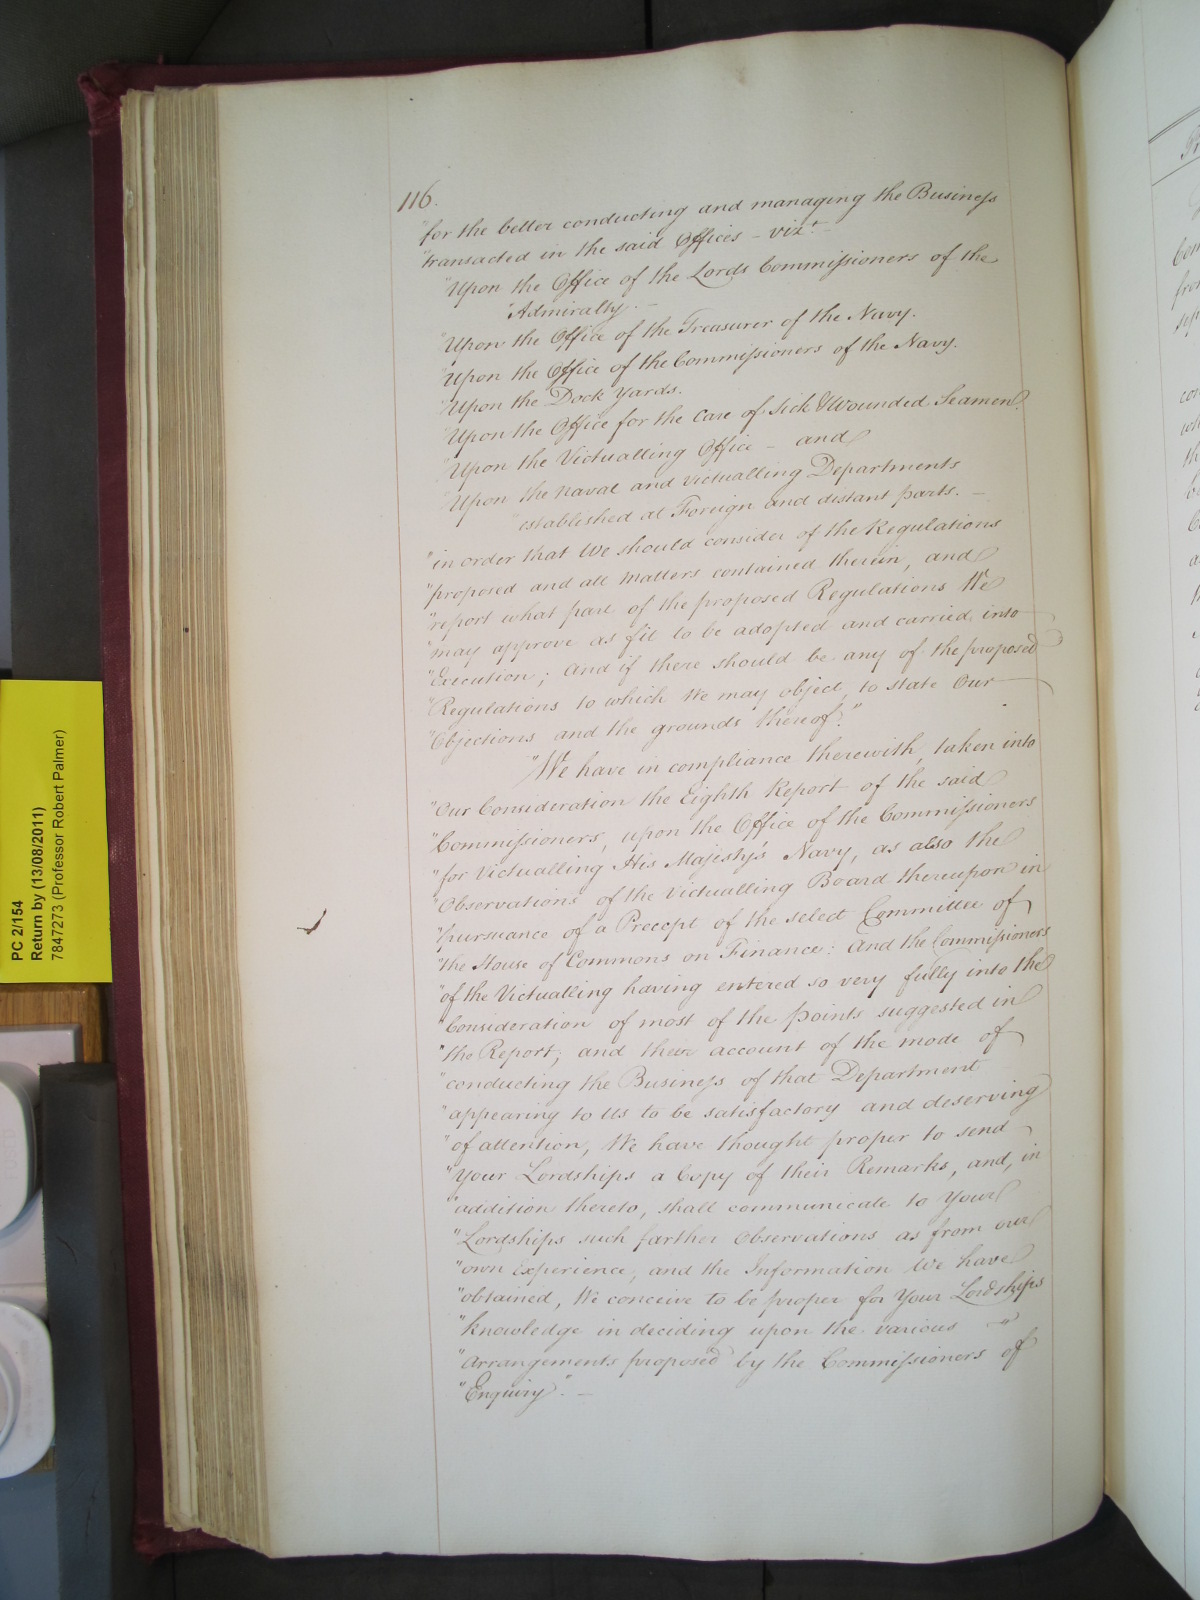 116.
"for the better conducting and managing the Business
"transacted in the said Offices – vizt. –
"Upon the Office of the Lords Commissioners of the
"Admiralty. –
"Upon the Office of the Treasurer of the Navy.
"Upon the Office of the Commissioners of the Navy.
"Upon the Dock Yards.
"Upon the Office for the Care of Sick & Wounded Seamen.
"Upon the Victualling Office – and
"Upon the Naval and Victualling Departments
"established at Foreign and distant parts. –
"in order that We should consider of the Regulations
"proposed and all Matters contained therein, and
"report what part of the proposed Regulations We
"may approve as fit to be adopted and carried into
"Execution; and if there should be any of the proposed
"Regulations to which We may object, to state Our
"Objections and the grounds thereof."
"We have in compliance therewith, taken into
"Our Consideration the Eighth Report of the said
"Commissioners, upon the Office of the Commissioners
"for Victualling His Majesty's Navy, as also the
"Observations of the Victualling Board thereupon in
"pursuance of a Precept of the select Committee of
"the House of Commons on Finance: And the Commissioners
"of the Victualling having entered so very fully into the
"Consideration of most of the points suggested in
"the Report; and their account of the mode of
"conducting the Business of that Department
"appearing to Us to be satisfactory and deserving
"of attention, We have thought proper to send
"Your Lordships a Copy of their Remarks, and, in
"addition thereto, shall communicate to Your
"Lordships such farther Observations as from our
"own Experience, and the Information We have
"obtained, We conceive to be proper for Your Lordships
"knowledge in deciding upon the various
"arrangements proposed by the Commissioners of
"Enquiry". –
PC 2/154
Return by (13/08/2011)
7847273 (Professor Robert Palmer)